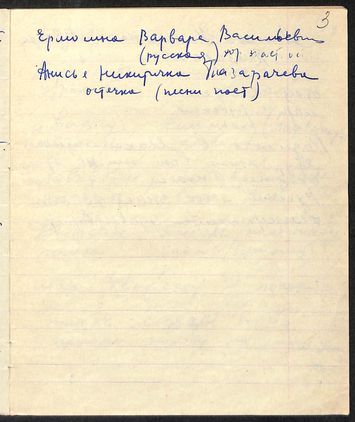 3
Ермолина Варвара Васильевн
(русская)
Анисья Никитична Назарачева
остячка (песни поет)